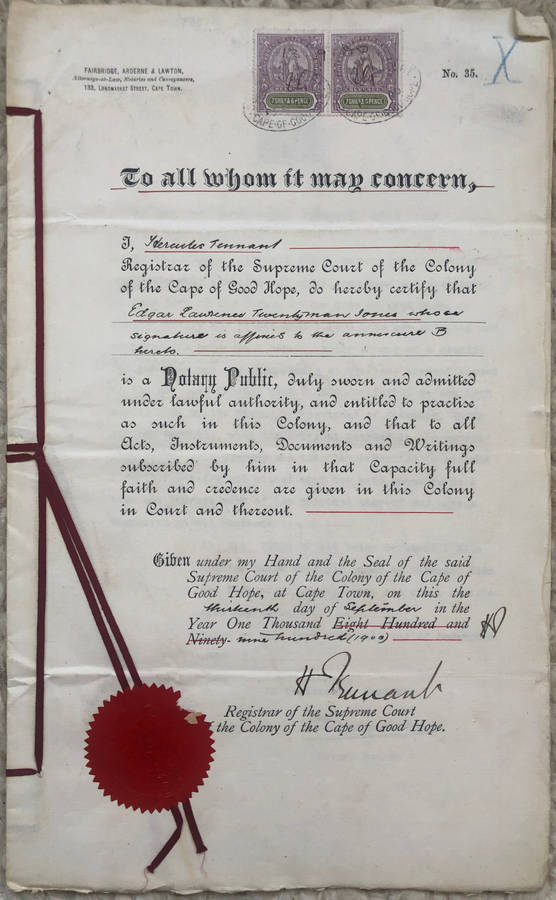 FAIRBRIDGE, ARDERNE & LAWTON,
Attorneys-at-Law, Notaries and Conveyancers,
133, LONGMARKET STREET, CAPE TOWN.
No. 35. X
7 SHILLS & 6 PENCE 7 SHILLS & 6 PENCE
CAPE-OF-GOOD
To all whom it may concern,
I, Hercules Tennant
Registrar of the Supreme Court of the Colony
of the Cape of Good Hope, do hereby certify that
Edgar Lawrence Twentyman Jones whose
signature is affixed to the annexure B
hereto.
is a Notary Public, duly sworn and admitted
under lawful authority, and entitled to practise
as such in this Colony, and that to all
Acts, Instruments, Documents and Writings
subscribed by him in that Capacity full
faith and credence are given in this Colony
in Court and thereout.
Given under my Hand and the Seal of the said
Supreme Court of the Colony of the Cape of
Good Hope, at Cape Town, on this the
thirteenth day of September in the
Year One Thousand Eight Hundred and
Ninety- nine hundred (1900)
H Tennant
Registrar of the Supreme Court
the Colony of the Cape of Good Hope.